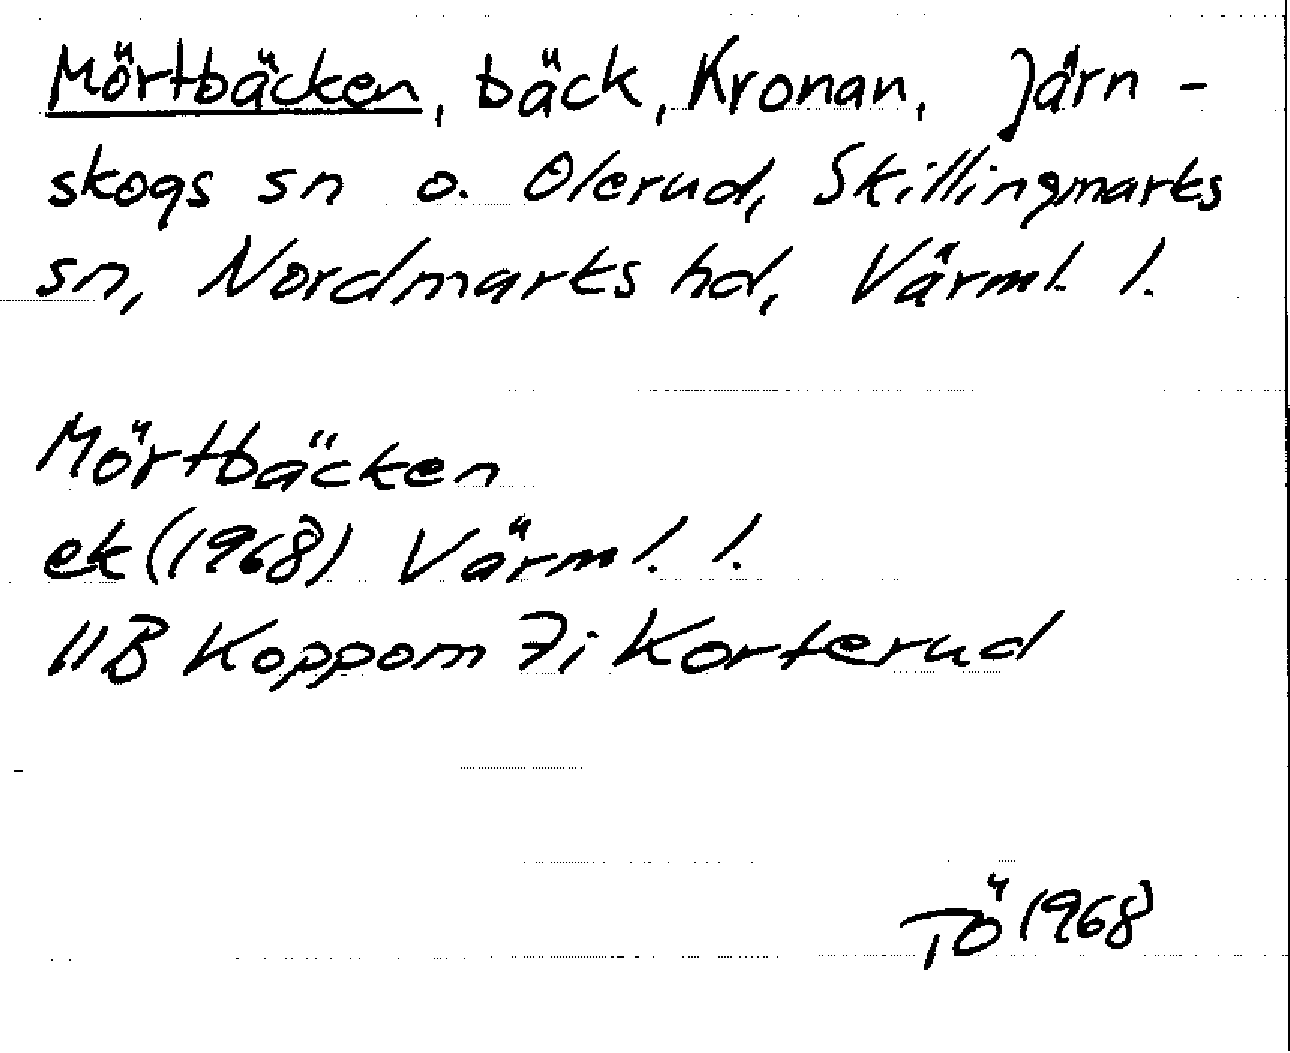 Mörtbäcken, bäck, Kronan, Järn-
skogs sn o. Olerud, Skillingmarks
sn, Nordmarks hd, Värml. l.
Mörtbäcken
ek (1968) Värml. l.
11B Koppom 7i Korterud
TÖ 1968